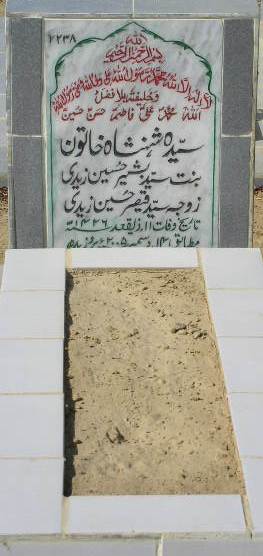 ۲۲۳۸
بسم اللہ الرحمن الرحیم
لا الہ الا اللہ محمد رسول اللہ علی ولی اللہ وصی رسول اللہ
و خلیفتہ بلا فصل
اللہ محمد علی فاطمہ حسن حسین
سیدہ شہنشاہ خاتون
بنت سید بشیر حسین زیدی
زوجہ سید قیصر حسین زیدی
تاریخ وفات ۱۱ ذیقعد ۱۴۲۶ھ
مطابق ۱۴ دسمبر ۲۰۰۵ء بروز بدھ